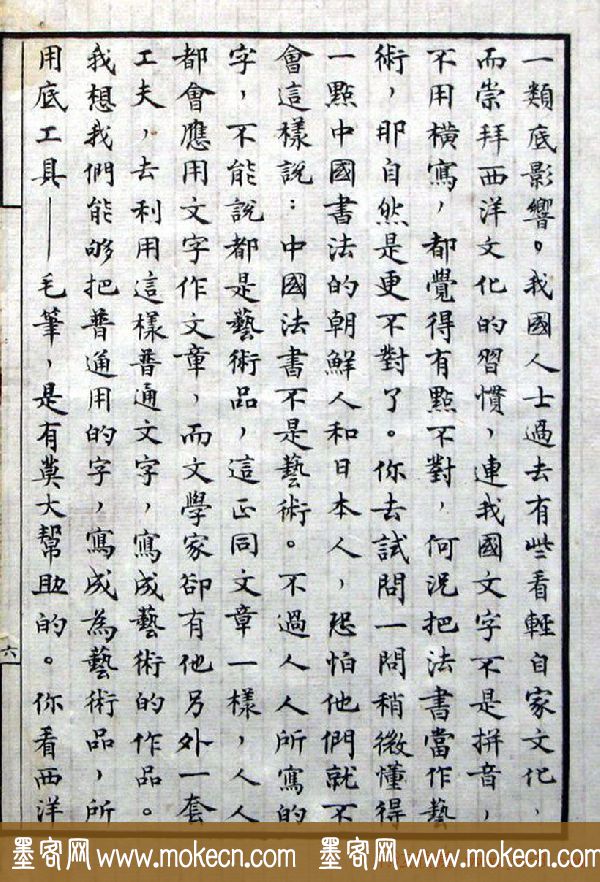 一類底影響。我國人士過去有些看輕自家文化，
而崇拜西洋文化的習慣，連我國文字不是拼音，
不用橫寫，都覺得有點不對，何況把法書當作藝
術，那自然是更不對了。你去試問一問稍微懂得
一點中國書法的朝鮮人和日本人，恐怕他們就不
會這樣說：中國法書不是藝術。不過人人所寫的
字，不能說都是藝術品，這正同文章一樣，人人
都會應用文字作文章，而文學家卻有他另外一套
工夫，去利用這樣普通文字，寫成藝術的作品。
我想我們能够把普通用的字，寫成為藝術品，所
用底工具——毛筆，是有莫大幫助的。你看西洋
六
墨客网 www.mokecn.com 墨客网 www.mokecn.com